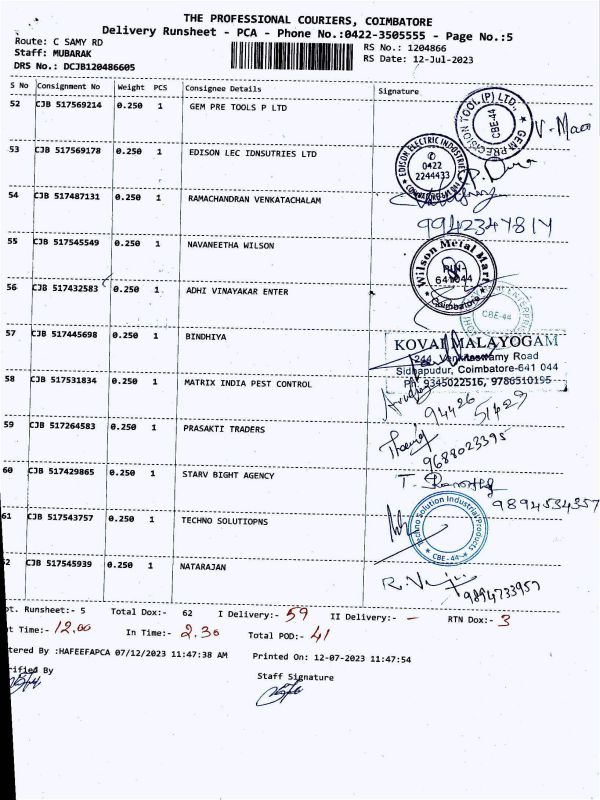 THE PROFESSIONAL COURIERS, COIMBATORE
Delivery Runsheet - PCA - Phone No.:0422-3505555 - Page No.:5
Route: C SAMY RD
RS No.: 1204866
Staff: MUBARAK
RS Date: 12-Jul-2023
DRS No.: DCJB120486605
S No Consignment No Weight PCS Consignee Details Signature
52 CJB 517569214 0.250 1 GEM PRE TOOLS P LTD
GEM PRECISION TOOL (P) LTD., CBE-44
53 CJB 517569178 0.250 1 EDISON LEC IDNSUTRIES LTD
EDISON ELECTRIC INDUSTRIES
0422
2244433
54 CJB 517487131 0.250 1 RAMACHANDRAN VENKATACHALAM
9942347814
55 CJB 517545549 0.250 1 NAVANEETHA WILSON
Wilson Metal Mart
PIN-
641044
Coimbatore
56 CJB 517432583 0.250 1 ADHI VINAYAKAR ENTER
CBE-44
57 CJB 517445698 0.250 1 BINDHIYA
KOVAI MALAYOGAM
244, Venkitaswamy Road
Sidhapudur, Coimbatore-641 044
Ph: 9345022516, 9786510195
58 CJB 517531834 0.250 1 MATRIX INDIA PEST CONTROL
94426 51429
59 CJB 517264583 0.250 1 PRASAKTI TRADERS
9688023395
60 CJB 517429865 0.250 1 STARV BIGHT AGENCY
9894534357
61 CJB 517543757 0.250 1 TECHNO SOLUTIOPNS
Techno Solution Industrial Products
CBE-44
62 CJB 517545939 0.250 1 NATARAJAN
9894733957
ot. Runsheet:- 5 Total Dox:- 62 I Delivery:- 59 II Delivery:- - RTN Dox:- 3
t Time:- 12.00 In Time:- 2.30 Total POD:- 41
tered By :HAFEEFAPCA 07/12/2023 11:47:38 AM Printed On: 12-07-2023 11:47:54
rified By
Staff Signature